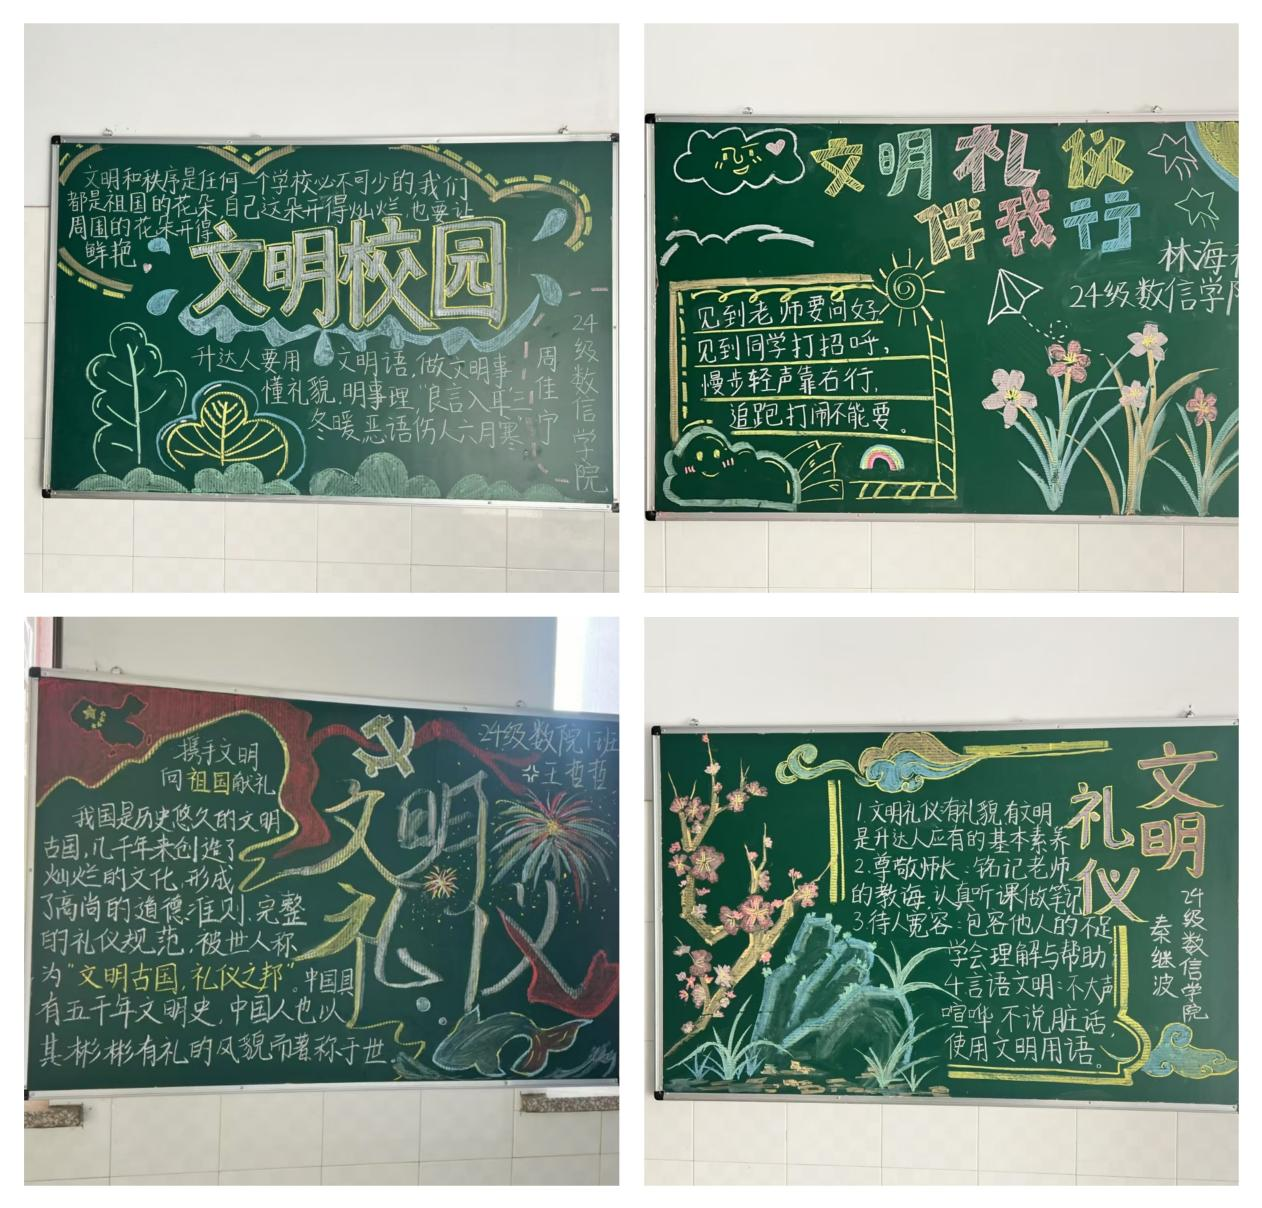 文明和秩序是任何一个学校必不可少的,我们
都是祖国的花朵,自己这朵开得灿烂,也要让
周围的花朵开得
鲜艳
文明校园
升达人要用 文明语,做文明事
懂礼貌,明事理,"良言入耳三
冬暖恶语伤人六月寒
周佳宁
24级数信学院
文明礼仪
伴我行
林海
24级数信学院
见到老师要问好
见到同学打招呼,
慢步轻声靠右行,
追跑打闹不能要。
24级数院1班
王哲哲
携手文明
向祖国献礼
文明
礼仪
我国是历史悠久的文明
古国,几千年来创造了
灿烂的文化,形成
了高尚的道德准则、完整
的礼仪规范,被世人称
为"文明古国,礼仪之邦"。中国具
有五千年文明史,中国人也以
其彬彬有礼的风貌而著称于世。
文明
礼仪
24级数信学院
秦继波
1.文明礼仪:有礼貌,有文明
是升达人应有的基本素养
2.尊敬师长:铭记老师
的教诲,认真听课做笔记
3.待人宽容:包容他人的不足
学会理解与帮助
4.言语文明:不大声
喧哗,不说脏话,
使用文明用语。